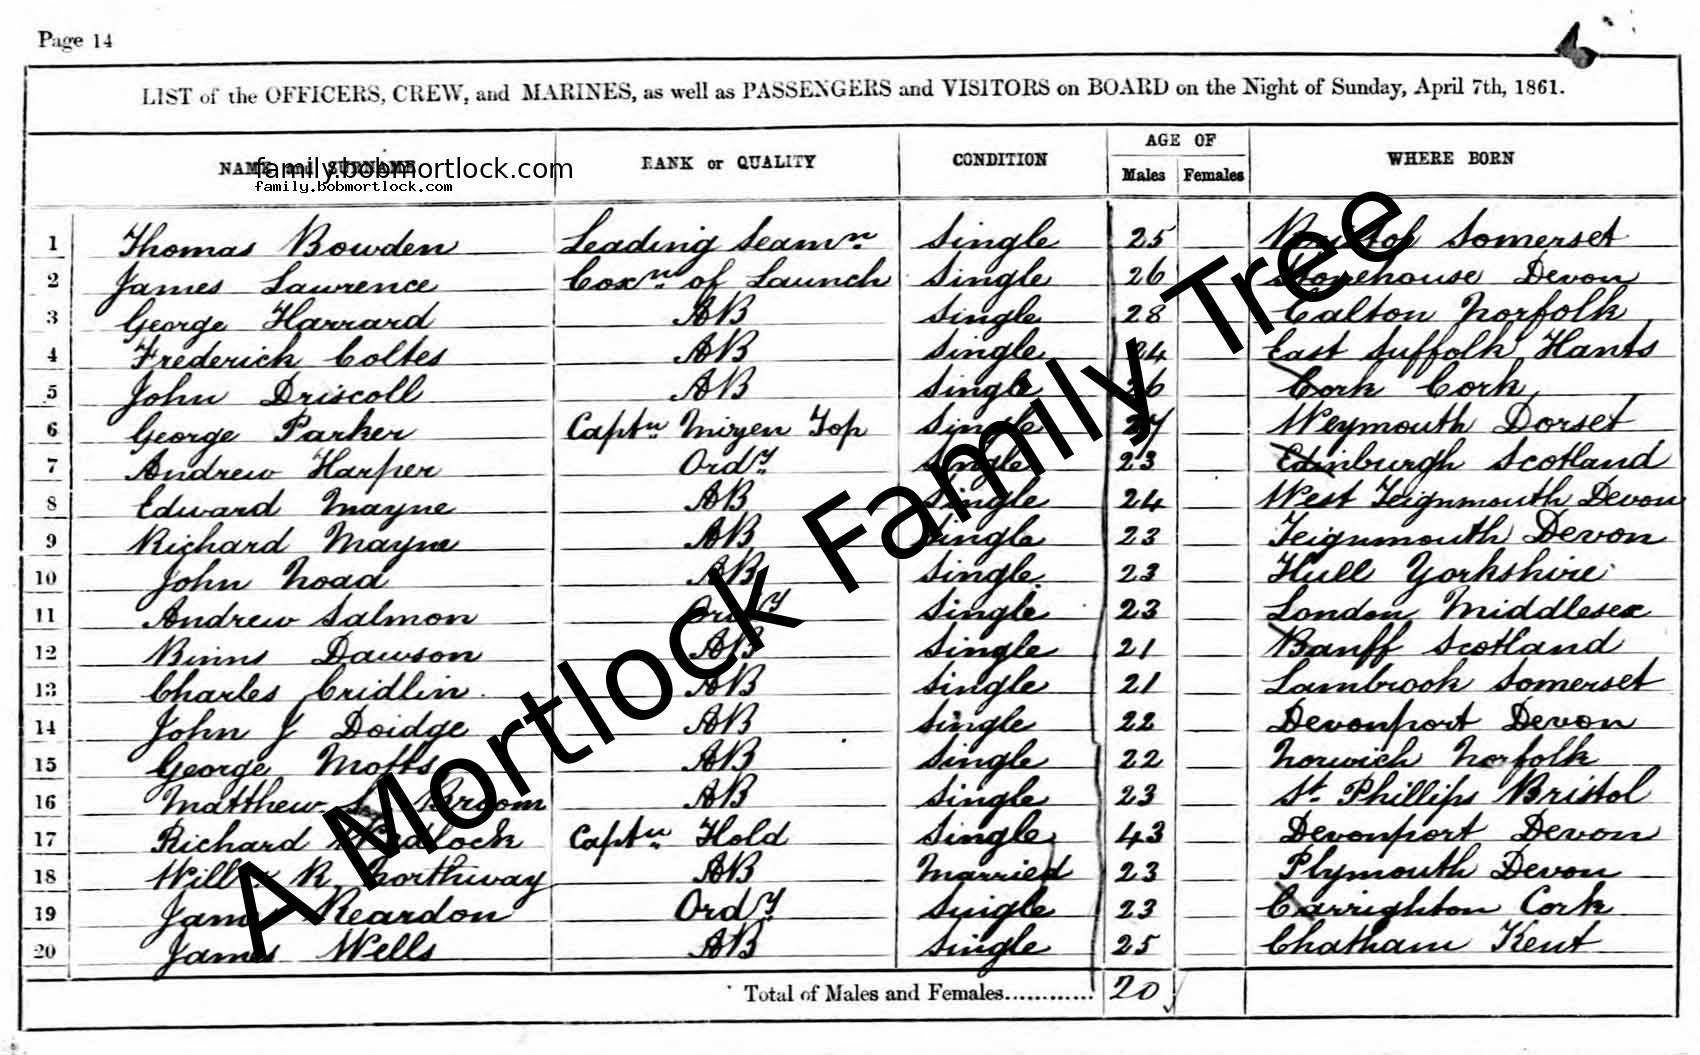 Page 14
LIST of the OFFICERS, CREW, and MARINES, as well as PASSENGERS and VISITORS on BOARD on the Night of Sunday, April 7th, 1861.
NAME and SURNAME RANK or QUALITY CONDITION AGE OF WHERE BORN
Males Females
family.bobmortlock.com
family.bobmortlock.com
1 Thomas Bowden Leading Seamn Single 25 Bristol Somerset
2 James Lawrence Coxn of Launch Single 26 Stonehouse Devon
3 George Harrard AB Single 28 Calton Norfolk
4 Frederick Coltes AB Single 24 East Suffolk Hants
5 John Driscoll AB Single 26 Cork Cork
6 George Parker Captn Mizen Top Single 27 Weymouth Dorset
7 Andrew Harper Ordy Single 23 Edinburgh Scotland
8 Edward Mayne AB Single 24 West Teignmouth Devon
9 Richard Mayne AB Single 23 Teignmouth Devon
10 John Noad AB Single 23 Hull Yorkshire
11 Andrew Salmon Ordy Single 23 London Middlesex
12 Binns Dawson AB Single 21 Banff Scotland
13 Charles Cridlin AB Single 21 Lambrook Somerset
14 John J Doidge AB Single 22 Devonport Devon
15 George Motts AB Single 22 Norwich Norfolk
16 Matthew Broom AB Single 23 St Phillips Bristol
17 Richard Wedlock Captn Hold Single 43 Devonport Devon
18 R Northway AB Married 23 Plymouth Devon
19 James Reardon Ordy Single 23 Carrighton Cork
20 James Wells AB Single 25 Chatham Kent
Total of Males and Females............ 20
A Mortlock Family Tree